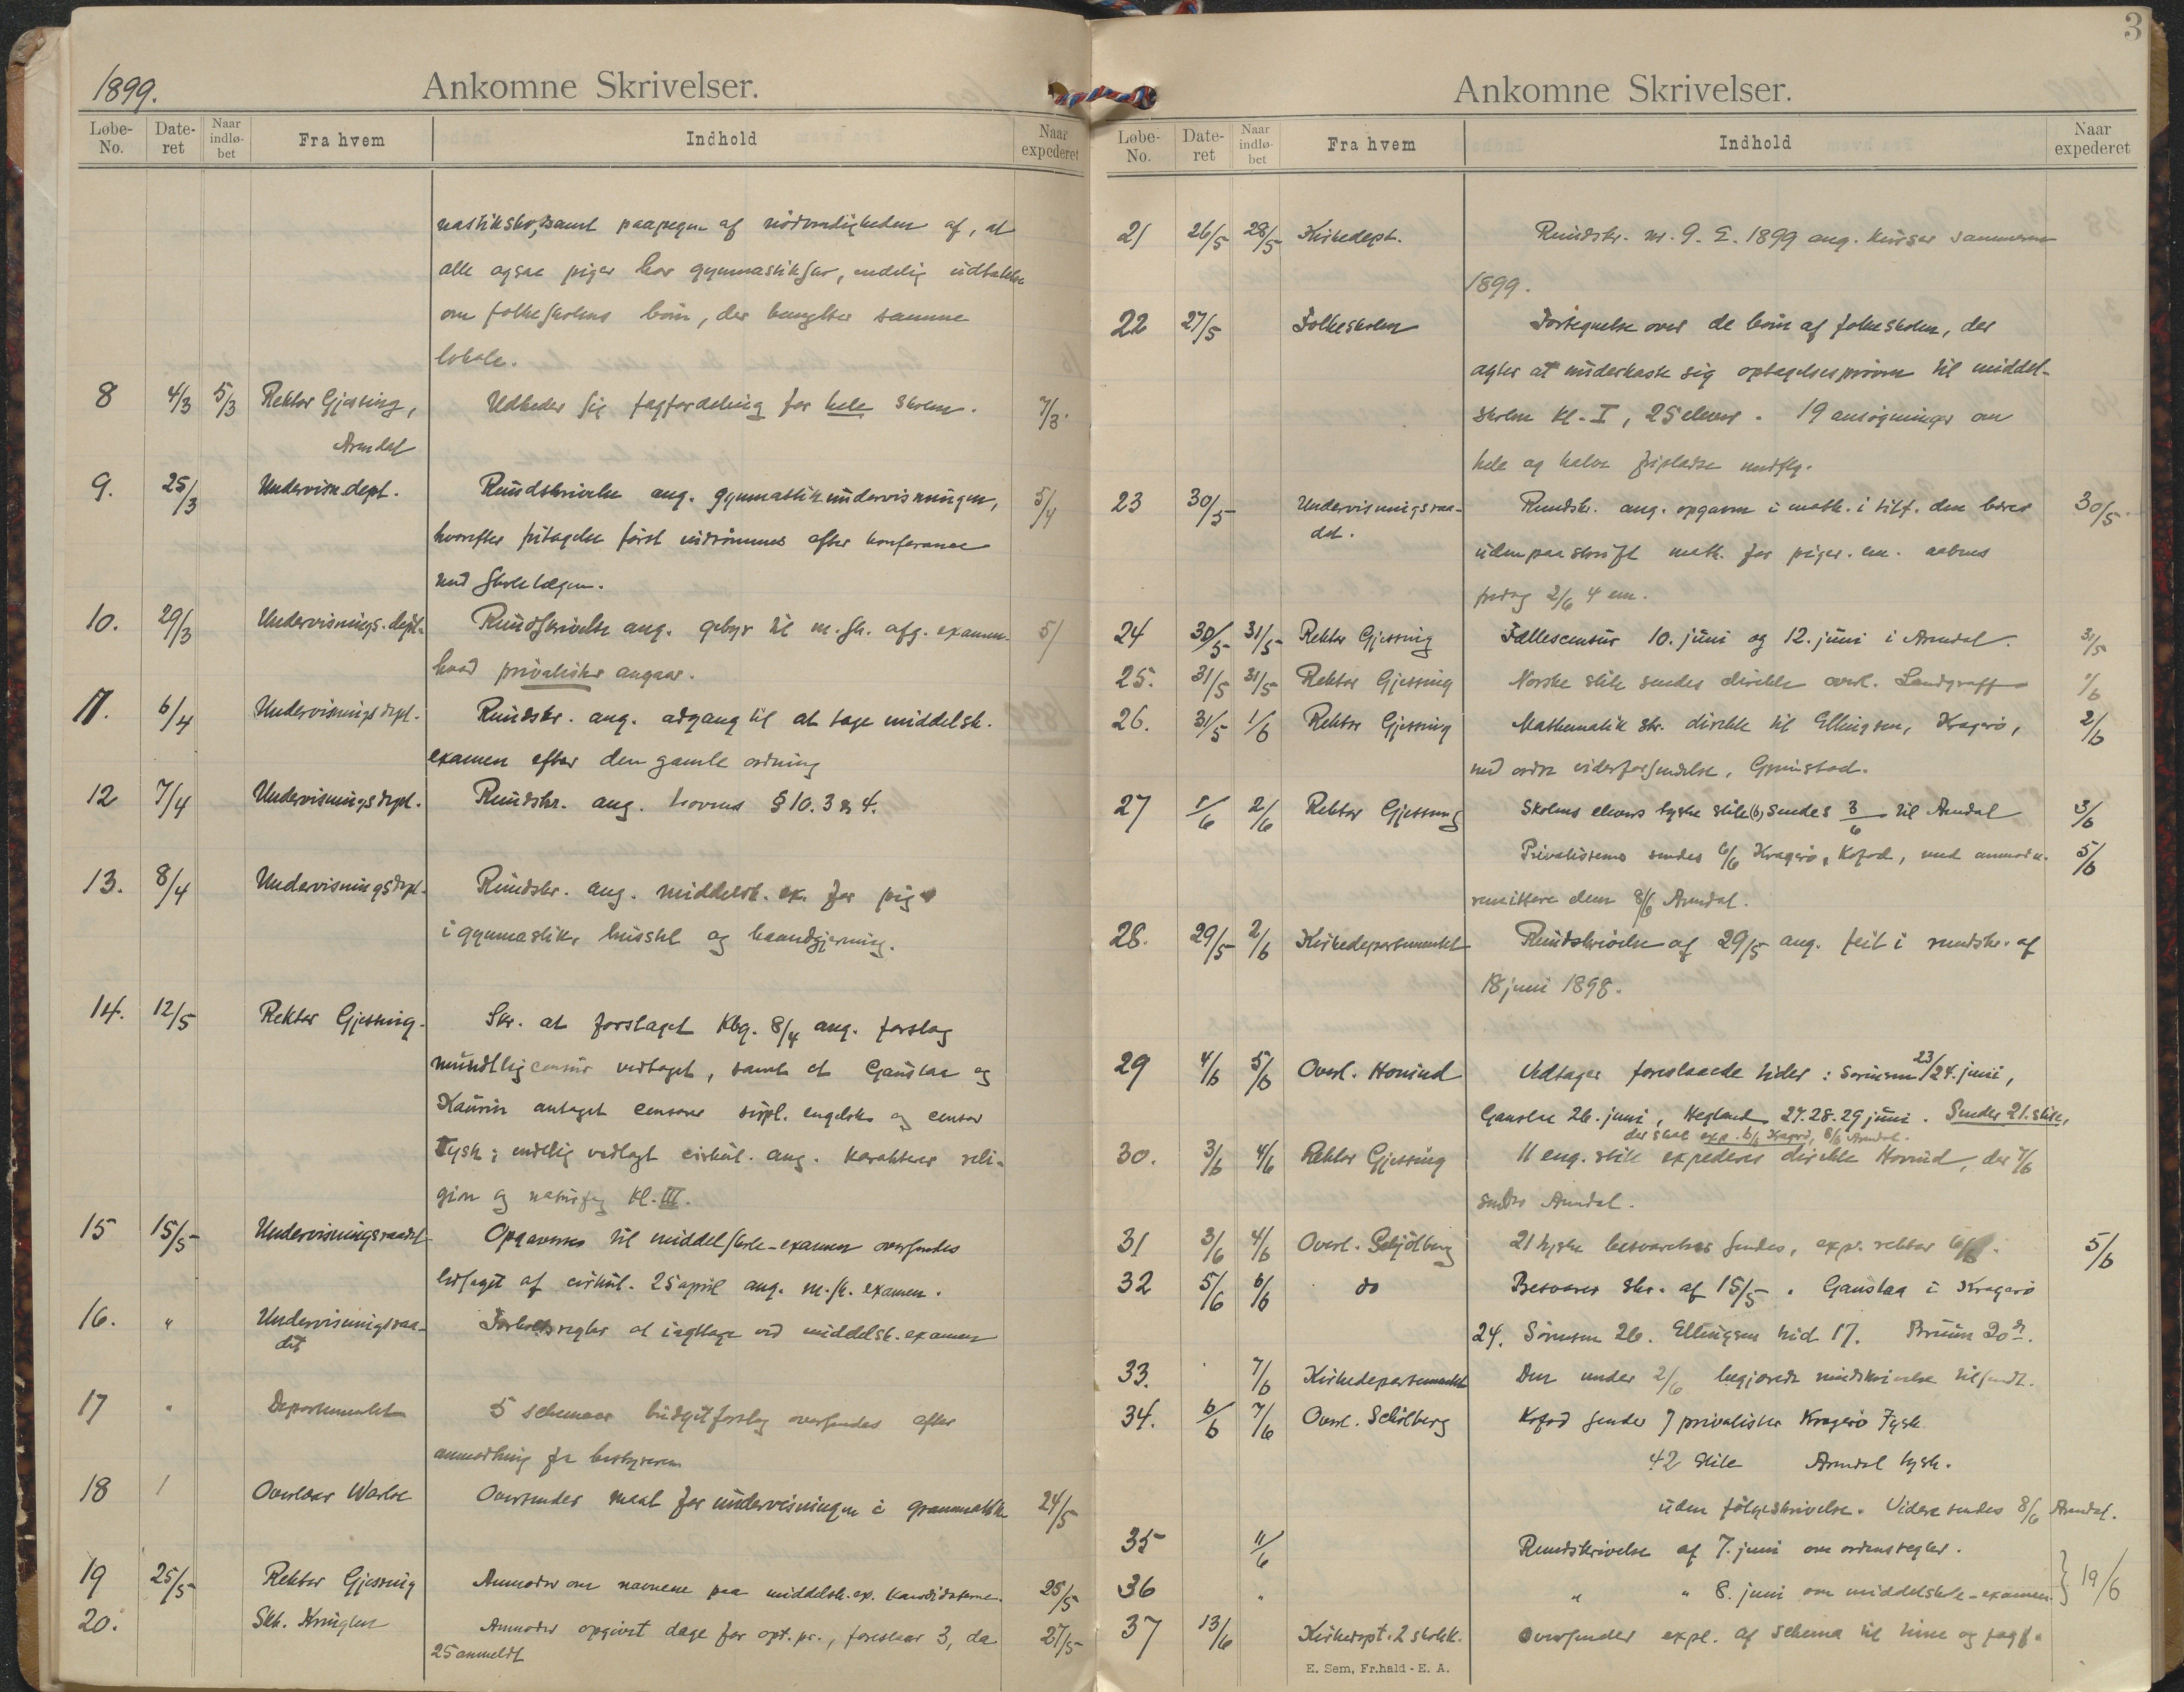 1899. Ankomne Skrivelser.
Løbe-No. Date-ret Naar indlø-bet Fra hvem Indhold Naar expederet
nastiksko, samt paapegen af nödvendigheden af, at
alle ogsaa piger har gymnastiksko, endelig udtalelse
om folkeskolens börn, der benytter samme
lokale.
8 4/3 5/3 Rektor Gjessing, Udbeder sig fagfordeling for hele skolen. 7/3.
Arendal
9. 25/3 Undervisn.dept. Rundskrivelse ang. gymnastikundervisningen, 5/4
hvorefter fritagelse först indrömmes efter konferance
med skolelægen.
10. 29/3 Undervisnings.dept. Rundskrivelse ang. gebyr til m.sk. afg. examen 5/
hvad privatister angaar.
11. 6/4 Undervisningsdept. Rundskr. ang. adgang til at tage middelsk.
examen efter den gamle ordning
12 7/4 Undervisningsdept. Rundskr. ang. lovens § 10. 3 & 4.
13. 8/4 Undervisningsdept. Rundskr. ang. middelsk. ex. for piger
i gymnastik, husstel og haandgjerning.
14. 12/5 Rektor Gjessing. Skr. at forslaget Kbg. 8/4 ang. forslag
mundtlig censur vedtaget, samt at Ganslaa og
Kaurin antaget censorer suppl. engelsk og censor
Tysk; endelig vedlagt cirkul. ang. karakterer reli-
gion og naturfag Kl. III.
15 15/5 Undervisningsraadet Opgaverne til middelskole-examen oversendes
ledsaget af cirkul. 25 april ang. m.sk. examen.
16. " Undervisningsraa- Forholdsregler at iagttage ved middelsk. examen
det
17 " Departementet 5 schemaer budgetforslag oversendes efter
anmodning fra bestyreren
18 Overlærer Oversender maal for undervisningen i grammatik 24/5
19 25/5 Rektor Gjessing Anmoder om navnene paa middelsk. ex. kandidaterne. 25/5
20. Skb. Kringlen Anmoder opgivet dage for opt. pr., foreslaar 3, da 27/5
25 anmeldt
3
Ankomne Skrivelser.
Løbe-No. Date-ret Naar indlø-bet Fra hvem Indhold Naar expederet
21 26/5 28/5 Kirkedept. Rundskr. nr. 9. E. 1899 ang. kurser sommeren
1899.
22 27/5 Folkeskolen Fortegnelse over de börn af folkeskolen, der
agter at underkaste sig optagelsespröven til middel-
skolen Kl. I, 25 elever. 19 ansögninger om
hele og halve fripladse medflg.
23 30/5 Undervisningsraa- Rundskr. ang. opgaven i math. i tilf. den bærer 30/5.
det. udenpaaskrift math. for piger. aabnes
fredag 2/6 4 em.
24 30/5 31/5 Rektor Gjessing Fællescensur 10. juni og 12. juni i Arendal. 31/5
25. 31/5 31/5 Rektor Gjessing Norske stile sendes direkte overl. Landgraff 1/6
26. 31/5 1/6 Rektor Gjessing Mathematik skr. direkte til Ellingsen, Kragerö, 2/6
med ordre viderforsendelse, Grimstad.
27 1/6 2/6 Rektor Gjessing Skolens elevers tyske stile (6) sendes 3/6 til Arendal 3/6
Privatisternes sendes 6/6 Kragerö, Kofod, med anmodn. 5/6
remittere dem 8/6 Arendal.
28. 29/5 2/6 Kirkedepartementet Rundskrivelse af 29/5 ang. feil i rundskr. af
18 juni 1898.
29 4/6 5/6 Overl. Hovind Vedtager foreslaaede tider: Sörensen 23/24. juni,
Ganslaa 26. juni, Hegland 27. 28. 29 juni. Sender 21. stile,
der skal exp. 6/6 Kragerö, 8/6 Arendal.
30. 3/6 4/6 Rektor Gjessing 11 eng. stile expederes direkte Hovind, der 7/6
sendes Arendal.
31 3/6 4/6 Overl. Schjölberg 21 tyske besvarelser sendes, exp. rektor 6/6. 5/6
32 5/6 6/6 do Besvarer skr. af 15/5. Ganslaa i Kragerö
24. Sörensen 26. Ellingsen hid 17. Bruun 20de.
33. 7/6 Kirkedepartementet Den under 2/6 begjærede rundskrivelse tilsendt.
34. 6/6 7/6 Overl. Schölberg Kofod sender 7 privatister Kragerö Tysk
42 stile Arendal tysk.
uden fölgeskrivelse. Videre sendes 8/6 Arendal.
35 11/6 Rundskrivelse af 7. juni om ordensregler.
36 " " " 8. juni om middelskole-examen } 19/6
37 13/6 Kirkedept. 2 skolek. Oversender expl. af schema til time og fagf.
E. Sem, Fr.hald - E. A.